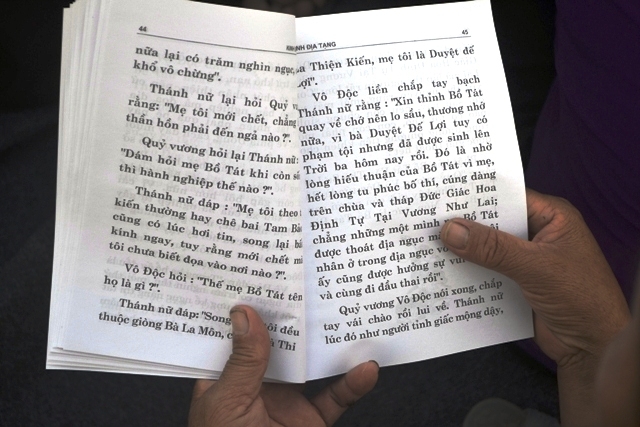 44
nữa lại có trăm nghìn ngục,
khổ vô chừng".
Thánh nữ lại hỏi Quỷ v
rằng: "Mẹ tôi mới chết, chẳng
thần hồn phải đến ngả nào ?".
Quỷ vương hỏi lại Thánh nữ:
"Đám hỏi mẹ Bồ Tát khi còn số
thì hành nghiệp thế nào ?".
Thánh nữ đáp : "Mẹ tôi theo
kiến thường hay chê bai Tam Bả
cũng có lúc hơi tin, song lại bấ
kính ngay, tuy rằng mới chết mà
tôi chưa biết đọa vào nơi nào ?".
Vô Độc hỏi : "Thế mẹ Bồ Tát tên
họ là gì ?".
Thánh nữ đáp: "Song tôi đều
thuộc giòng Bà La Môn, Thi
45
KINH ĐỊA TẠNG
Thiện Kiến, mẹ tôi là Duyệt đế
Lợi".
Vô Độc liền chắp tay bạch
Thánh nữ rằng : "Xin thỉnh Bồ Tát
quay về chớ nên lo sầu, thương nhớ
nữa, vì bà Duyệt Đế Lợi tuy có
phạm tội nhưng đã được sinh lên
Trời ba hôm nay rồi. Đó là nhờ
lòng hiếu thuận của Bồ Tát vì mẹ,
hết lòng tu phúc bố thí, cúng dàng
trên chùa và tháp Đức Giác Hoa
Định Tự Tại Vương Như Lai;
chẳng những một mình Bồ Tát
được thoát địa ngục mà
nhân ở trong địa ngục
ấy cũng được hưởng sự vui
và cùng đi đầu thai rồi".
Quỷ vương Vô Độc nói xong, chắp
tay vái chào rồi lui về. Thánh nữ
lúc đó như người tỉnh giấc mộng dậy,